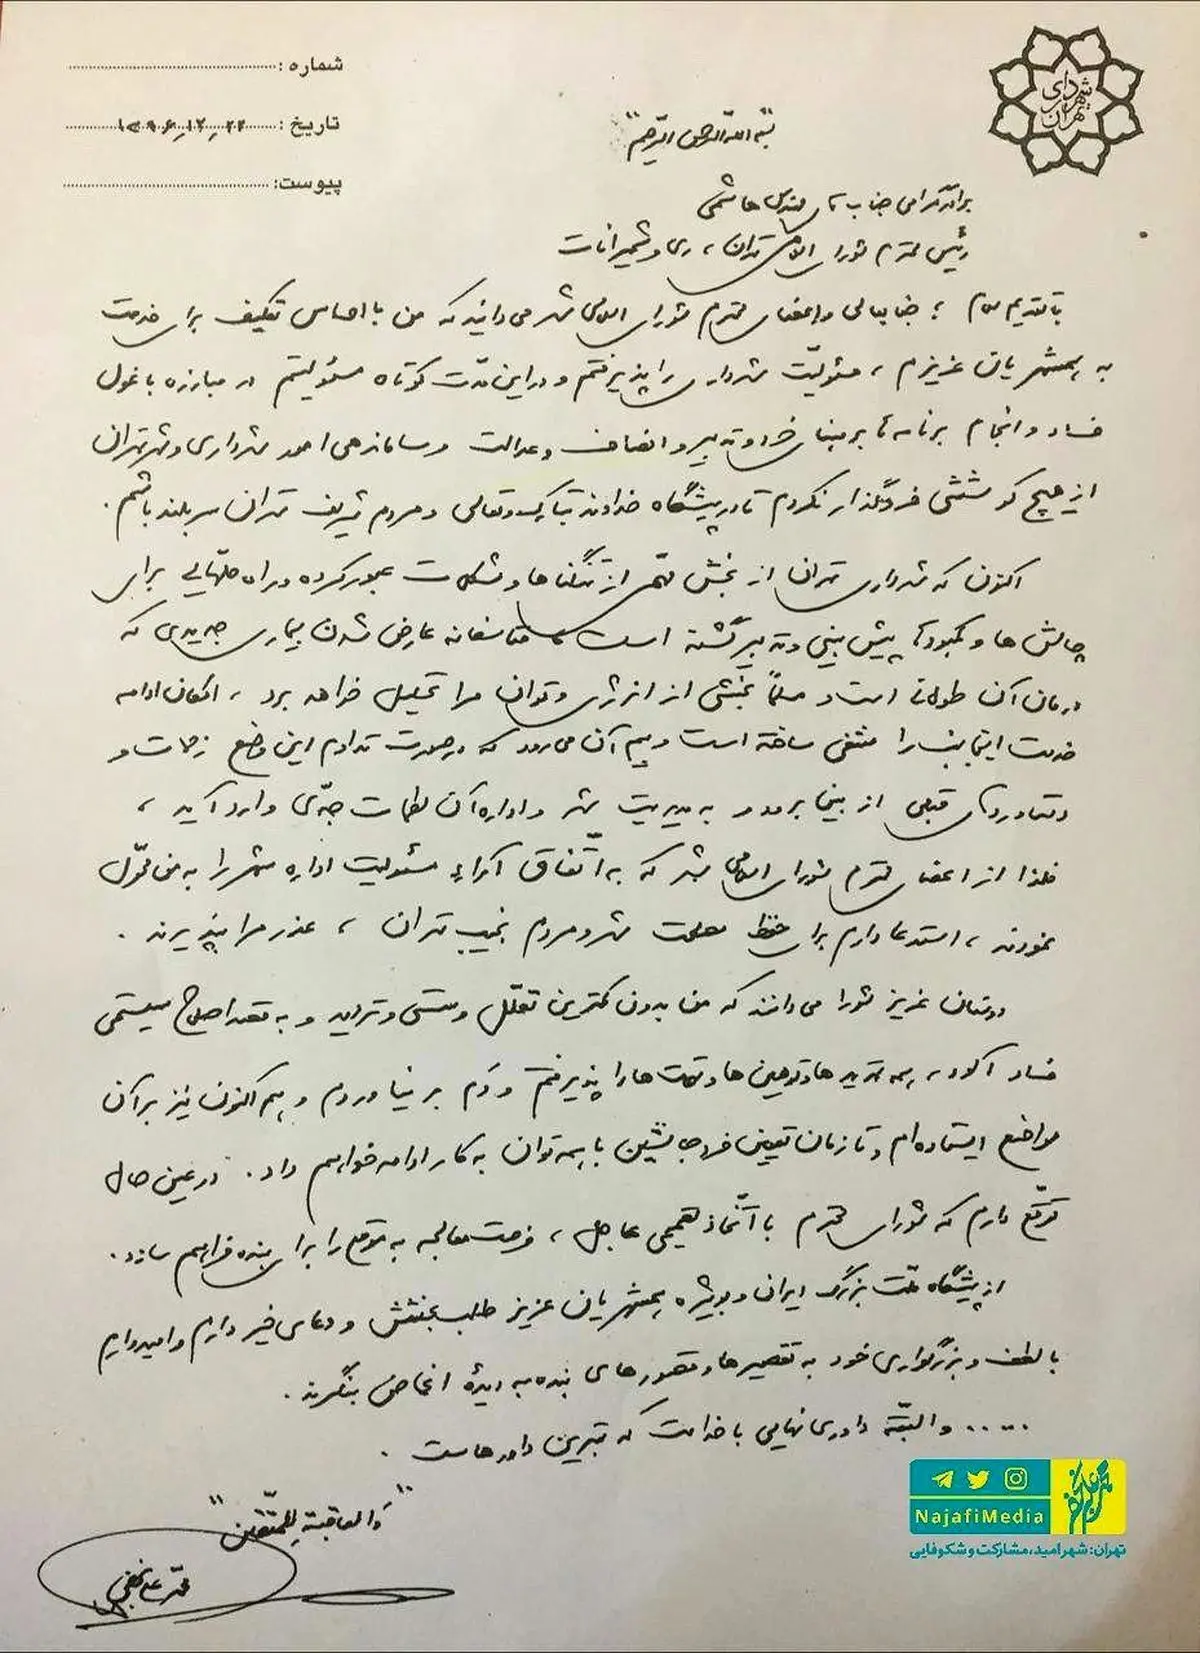 شهرداری تهران
شماره :
تاریخ : ۱۳۹۶,۱۲,۲۲
پیوست:
"بسم الله الرحمن الرحیم"
برادر گرامی جناب آقای مهندس هاشمی
رئیس محترم شورای اسلامی تهران، ری و شمیرانات
با تقدیم سلام ؛ جنابعالی و اعضای محترم شورای اسلامی شهر می دانید که من با احساس تکلیف برای خدمت
به همشهریان عزیزم ، مسئولیت شهرداری را پذیرفتم و در این مدّت کوتاه مسئولیتم در مبارزه با غول
فساد و انجام برنامه ها بر مبنای خرد و تدبیر و انصاف و عدالت و ساماندهی امور شهرداری و شهر تهران
از هیچ کوششی فروگذار نکردم تا در پیشگاه خداوند تبارک و تعالی و مردم شریف تهران سربلند باشم .
اکنون که شهرداری تهران از بخش مهمّی از تنگناها و مشکلات عبور کرده و راه حلّهایی برای
چالش ها و کمبودها پیش بینی و تدبیر گشته است متأسفانه عارض شدن بیماری جدیدی که
درمان آن طولانی است و مسلماً بخشی از انرژی و توان مرا تحلیل خواهد برد ، امکان ادامه
خدمت اینجانب را منتفی ساخته است و بیم آن می رود که در صورت تداوم این وضع زحمات و
دستاوردهای قبلی از بین برود و به مدیریت شهر و اداره آن لطمات جدّی وارد آید ،
فلذا از اعضای محترم شورای اسلامی شهر که به اتّفاق آراء مسئولیت اداره شهر را به من محوّل
نمودند ، استدعا دارم برای حفظ مصلحت شهر و مردم نجیب تهران ، عذر مرا بپذیرند .
دوستان عزیز شورا می دانند که من بدون کمترین تعلّل و سستی و تردید و به قصد اصلاح سیستمی
فساد آلود ، همه تهدیدها و توهین ها و تهمت ها را پذیرفتم و دَم بر نیاوردم و هم اکنون نیز بر آن
مواضع ایستاده ام و تا زمان تعیین فرد جانشین با همه توان به کار ادامه خواهم داد . در عین حال
توقّع دارم که شورای محترم با اتّخاذ تصمیمی عاجل ، فرصت معالجه به موقع را برای بنده فراهم سازد .
از پیشگاه ملّت بزرگ ایران و بویژه همشهریان عزیز طلب بخشش و دعای خیر دارم و امیدوارم
با لطف و بزرگواری خود به تقصیرها و قصورهای بنده به دیدۀ اغماض بنگرند .
..... و البتّه داوری نهایی با خداست که بهترین داورهاست .
"والعاقبة للمتّقین"
محمد علی نجفی
NajafiMedia
تهران: شهر امید، مشارکت و شکوفایی